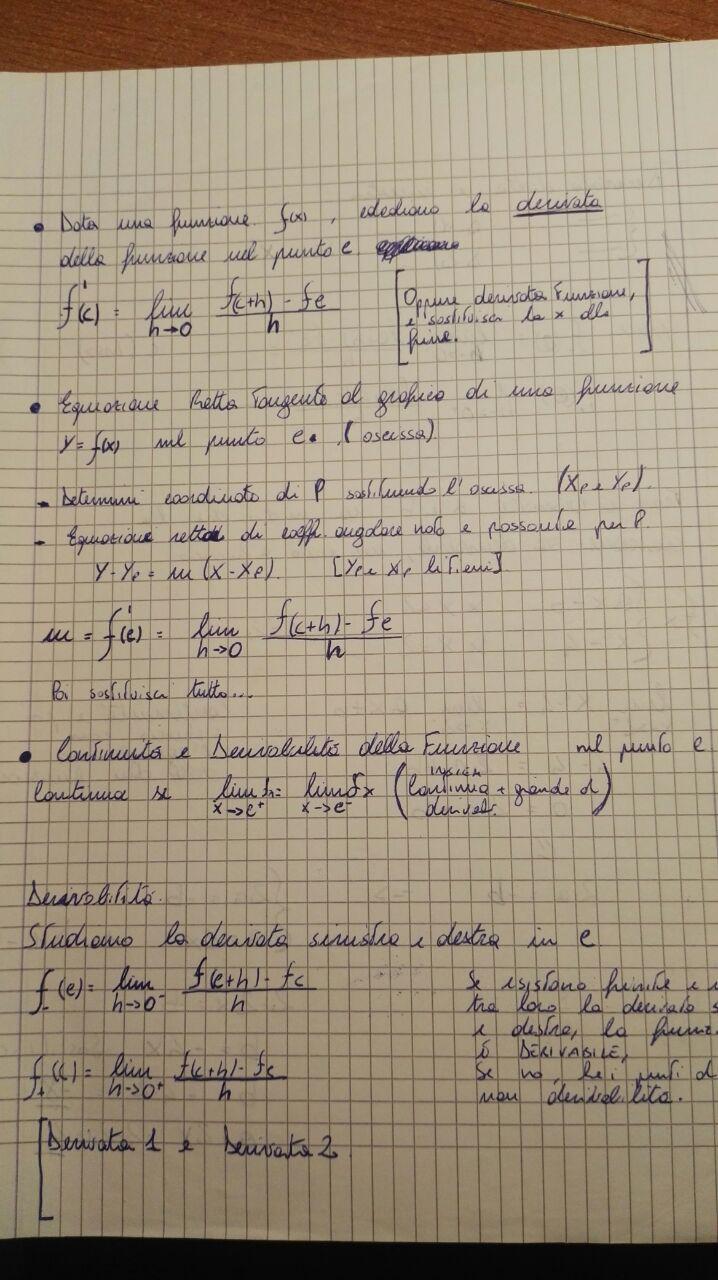 • Data una funzione f(x), calcoliamo la derivata
della funzione nel punto c
f'(c) = lim h→0 f(c+h) - fc / h
[Oppure derivata Funzione,
e sostituisci la x alla
fine.]
• Equazione Retta Tangente al grafico di una funzione
Y = f(x) nel punto c. (ascissa).
- Determini coordinate di P sostituendo l'ascissa. (Xp e Yp).
- Equazione retta di coeff. angolare noto e passante per P.
Y-Yp = m (X-Xp). [Yp e Xp li Tieni].
m = f'(c) = lim h→0 f(c+h) - fc / h
Poi sostituisci tutto...
• Continuità e Derivabilità della Funzione nel punto c
Continua se lim x→c+ = lim x→c- fx (insiem continua + grande d
derivab.)
Derivabilità.
Studiamo la derivata sinistra e destra in c
f-(c) = lim h→0- f(c+h) - fc / h
Se esistono finite e
tra loro la derivata s
e destra, la funz
è DERIVABILE,
Se no, hai punti d
non derivabilità.
f+(c) = lim h→0+ f(c+h) - fc / h
[Derivata 1 e Derivata 2.